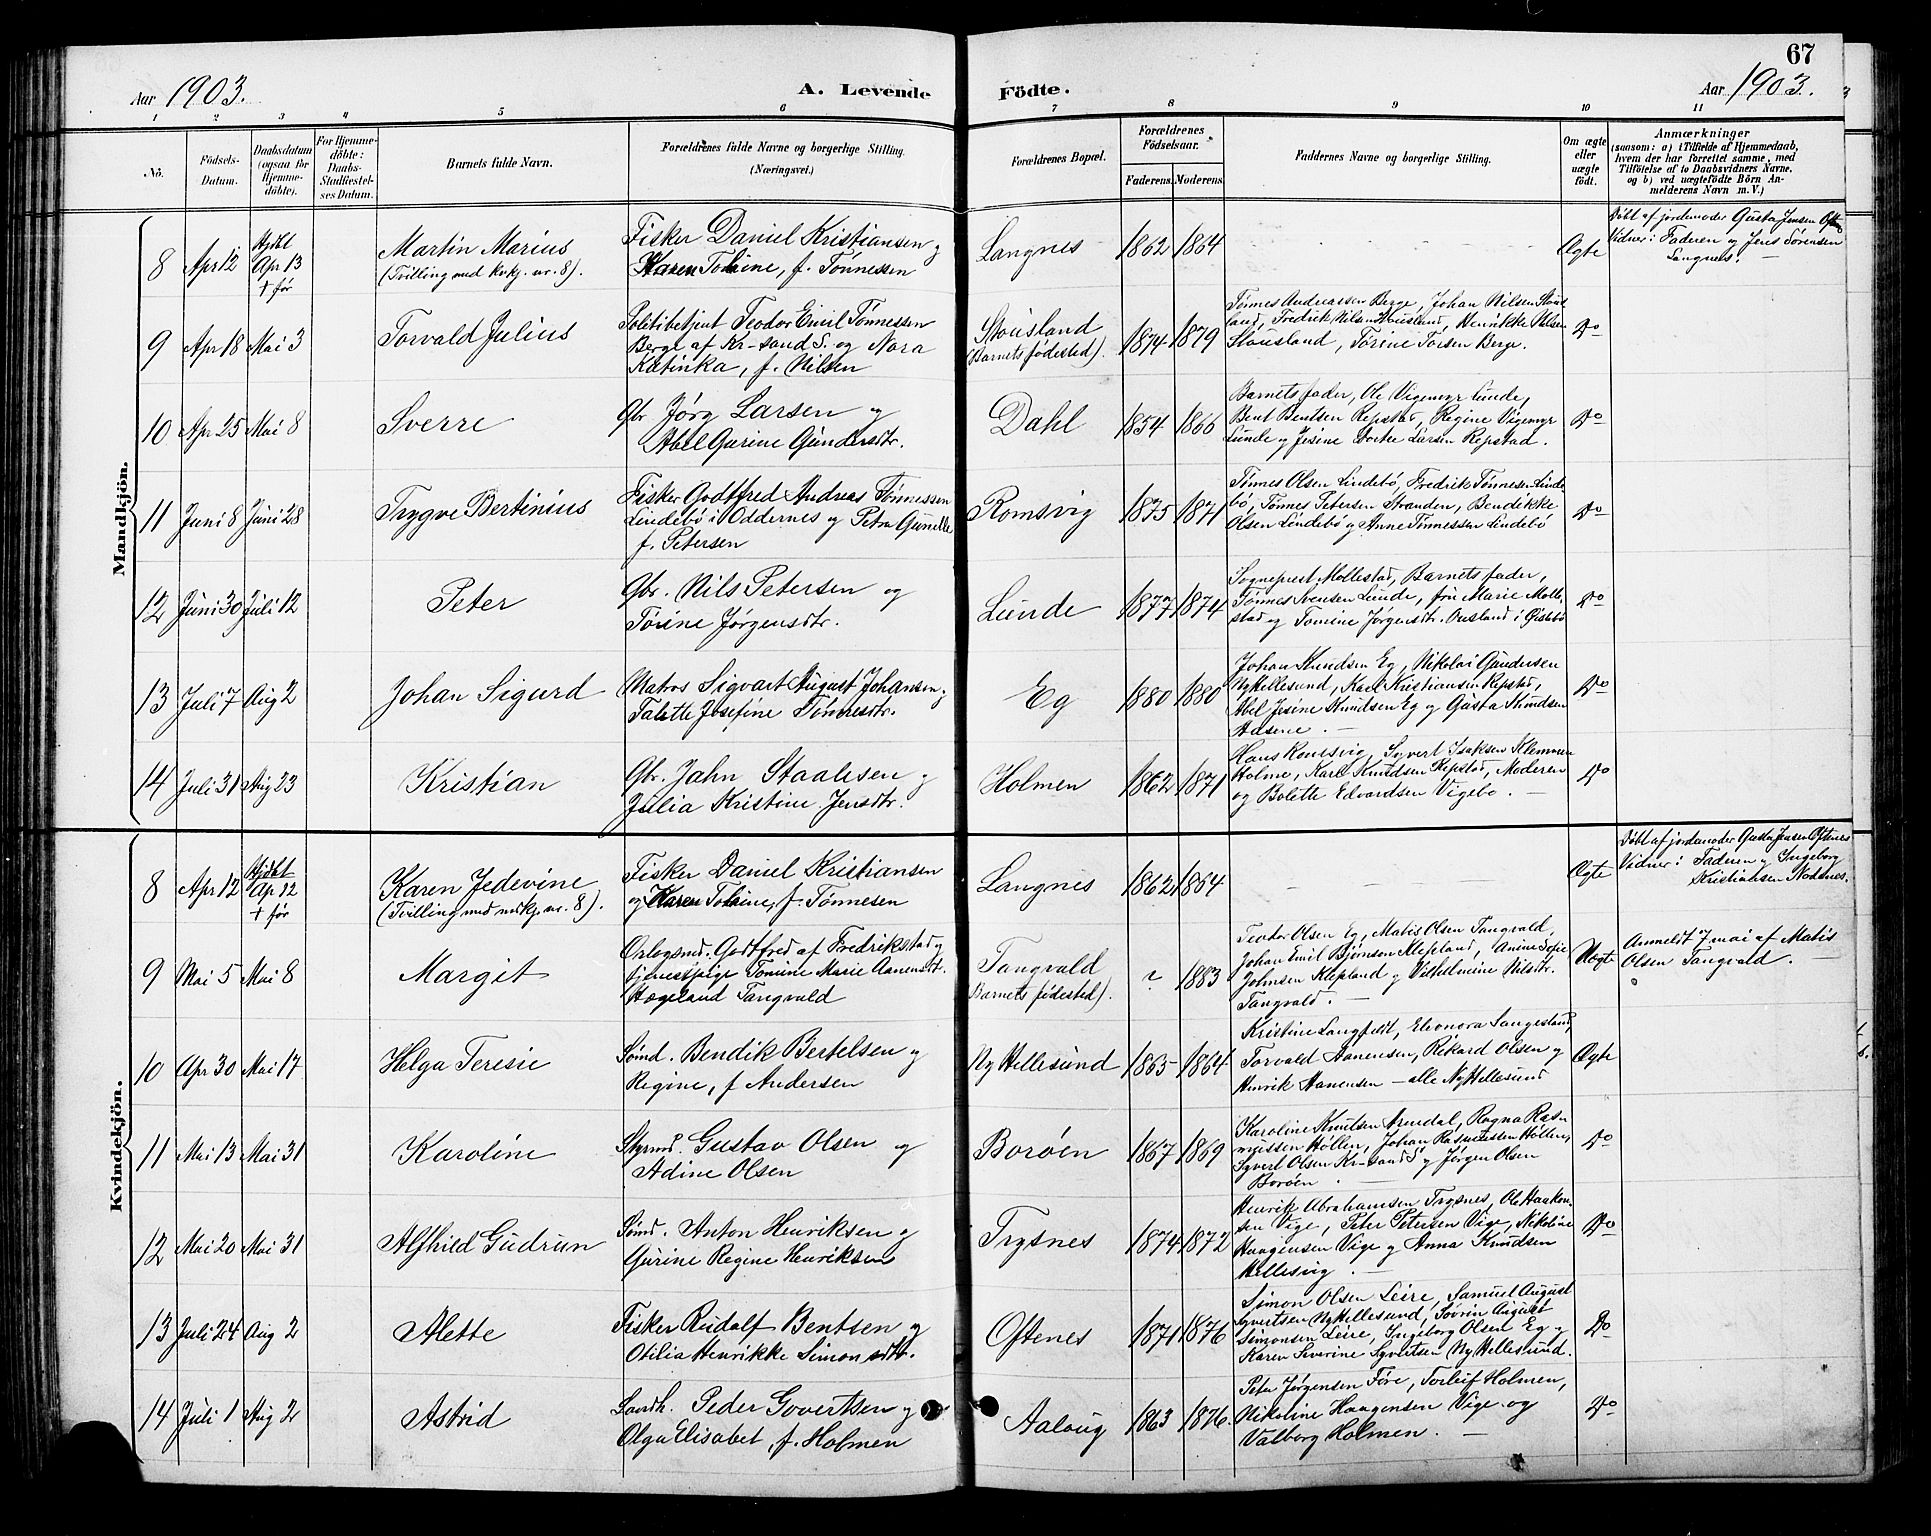 67
Aar 1903. A. Levende Födte. Aar 1903.
1 2 3 4 5 6 7 8 9 10 11
No. Födsels-Datum. Daabsdatum (ogsaa for Hjemme-döbte). For Hjemme-döbte: Daabs-Stadfæstel-ses Datum. Barnets fulde Navn. Forældrenes fulde Navne og borgerlige Stilling. (Næringsvei.) Forældrenes Bopæl. Forældrenes Födselsaar. Faderens. Moderens. Faddernes Navne og borgerlige Stilling. Om ægte eller uægte födt. Anmærkninger (saasom: a) i Tilfælde af Hjemmedaab, hvem der har forrettet samme, med Tilföielse af to Daabsvidners Navne. og b) ved uægtefödte Börn An-melderens Navn m. V.)
Mandkjön.
8 Apr 12 Hjdbt Apr 13 + før Martin Marius (Tvilling med kvkj. nr. 8). Fisker Daniel Kristiansen og Karen Tomine, f. Tönnessen Langnes 1862 1864 Ægte Döbt af jordemoder Gusta Jensen Vidner: Faderen og Jens Sörensen Langnes.
9 Apr 18 Mai 3 Torvald Julius Politibetjent Teodor Emil Tönnessen Berge af Kr-sand S. og Nora Katinka, f. Nilsen Stousland (Barnets födested). 1874 1879 Tönnes Andreassen Berge, Johan Nilsen Stous land, Fredrik Nilsen Stousland, Henrikke Nilsen Stousland, Torine Torsen Berge. Do
10 Apr 25 Mai 8 Sverre Gbr. Jörg Larsen og Abel Gurine Gundersdtr. Dahl 1854 1866 Barnets fader, Ole Vigemyr Lunde, Bent Bentsen Repstad, Regine Vigemyr Lunde og Jesine Larsen Repstad. Do
11 Juni 8 Juni 28 Trygve Bertinius Fisker Godtfred Andreas Tönnessen Lindebö i Oddernes og Petra Gunelle f. Petersen Romsvig 1875 1871 Tönnes Olsen Lindebö, Fredrik Tönnesen Linde bö, Tönnes Petersen Stranden, Bendikke Olsen Lindebö og Anne Tönnessen Lindebö Do
12 Juni 30 Juli 12 Peter Gbr. Nils Petersen og Torine Jörgensdtr. Lunde 1877 1874 Sogneprest Mollestad, Barnets fader, Tönnes Svensen Lunde, fru Marie Molle stad og Tomine Jörgensdtr. Do
13 Juli 7 Aug 2 Johan Sigurd Matros Sigvart August Johansen og Talette Josefine Tönnesdtr. Eg 1880 1880 Johan Knudsen Eg, Nikolai Gundersen Ny Hellesund, Karl Kristiansen Repstad, Abel Jesine Knudsen Eg og Gusta Knudsen Do
14 Juli 31 Aug 23 Kristian Gbr. Jahn Staalesen og Julia Kristine Jensdtr. Holmen 1862 1871 Hans Romsvig, Syvert Isaksen Klemmen Holme, Karl Knudsen Repstad, Moderen og Bolette Edvardsen Vigebo. Do
Kvindekjön.
8 Apr 12 Hjdbt Apr 12 + før Karen Jedevine (Tvilling med mdkj. nr. 8). Fisker Daniel Kristiansen og Karen Tomine, f. Tönnesen Langnes 1862 1864 Ægte Döbt af jordemoder Gusta Jensen Oftenes Vidner: Faderen og Ingeborg Kristiansen
9 Mai 5 Mai 8 Margit Orlogsmd. Godtfred af Fredrikstad og tjenestepige Tomine Marie Aanensdtr. Hægeland Tangvald Tangvald Barnets födested). ? 1883 Teodor Olsen Eg, Matis Olsen Tangvald, Johan Emil Bjönson Klepland, Anine Sofie Johnsen Klepland og Vilhelmine Nilsdtr. Tangvald. Uægte Anmeldt 7 mai af Matis Olsen Tangvald.
10 Apr 30 Mai 17 Helga Teresie Sömd. Bendik Bertelsen og Regine, f. Andersen Ny Hellesund 1863 1864 Kristine Langfeldt, Eleonora Langesland, Torvald Aanensen, Rikard Olsen og Henrik Hanensen – alle Ny Hellesund Ægte
11 Mai 13 Mai 31 Karoline Styrmd. Gustav Olsen og Adine Olsen Boröen 1867 1869 Karoline Knutsen Arendal, Ragna Ras-mussen Höllen, Johan Rasmussen Höllen, Syvert Olsen Kr-sand S og Jörgen Olsen Boröen. Do
12 Mai 20 Mai 31 Alfhild Gudrun Sömd. Anton Henriksen og Gurine Regine Henriksen Trysnes 1874 1872 Henrik Abrahamsen Trysnes, Ole Haaken-sen Vige, Peter Petersen Vige, Nikoline Haagensen Vige og Anna Knudsen Hellesvig. Do
13 Juli 24 Aug 2 Alette Fisker Rudolf Bentsen og Otilia Henrikke Simonsdtr. Oftenes 1871 1876 Simon Olsen Leire, Samuel August Syvertsen Ny Hellesund, Sörin August Simonsen Leire, Ingeborg Olsen Eg og Karen Severine Syvertsen Ny Hellesund. Do
14 Juli 1 Aug 2 Astrid Peder Govertsen og Olga Elisabet, f. Holmen Aaloug 1863 1876. Peter Jörgensen Före, Torleif Holmen, Nikoline Haagensen Vige og Valborg Holmen. Do